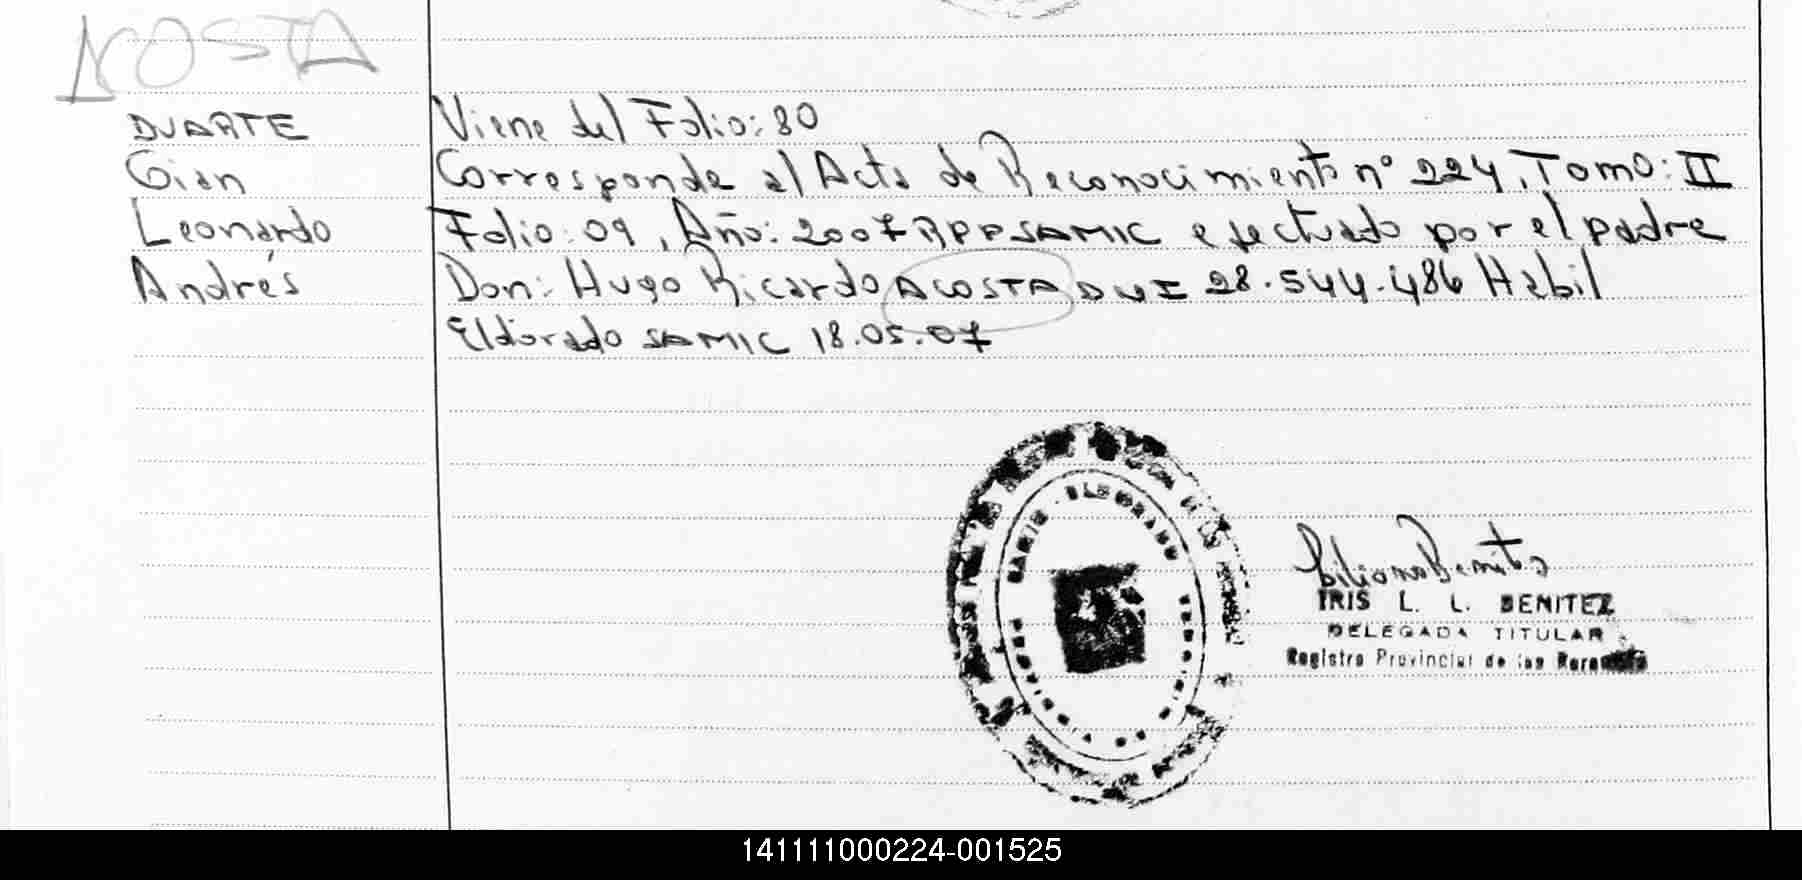 ACOSTA
DUARTE
Gian
Leonardo
Andrés
Viene del Folio: 80
Corresponde al Acta de Reconocimiento nº 224, Tomo: II
Folio: 09, Año: 2007 RPPSAMIC efectuado por el padre
Don: Hugo Ricardo ACOSTA DNI 28.544.486 Habil
Eldorado SAMIC 18.05.07
SAMIC ELDORADO
IRIS L. L. BENITEZ
DELEGADA TITULAR
Registro Provincial de las Personas
141111000224-001525